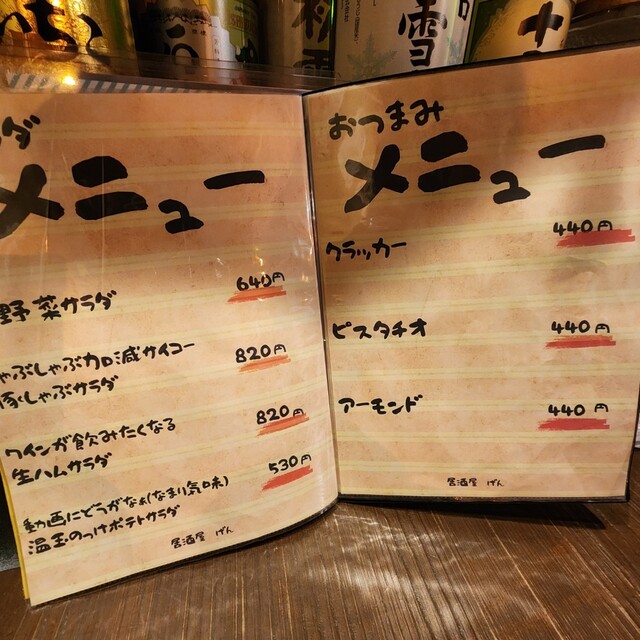 雪
ダ
メニュー
野菜サラダ
640円
ゃぶしゃぶカロ減サイコー
豚しゃぶサラダ
820円
ワインが飲みたくなる
生ハムサラダ
820円
動画にどうがなぁ(なまり気味)
温玉のっけポテトサラダ
530円
居酒屋 げん
おつまみ
メニュー
クラッカー
440円
ピスタチオ
440円
アーモンド
440円
居酒屋 げん